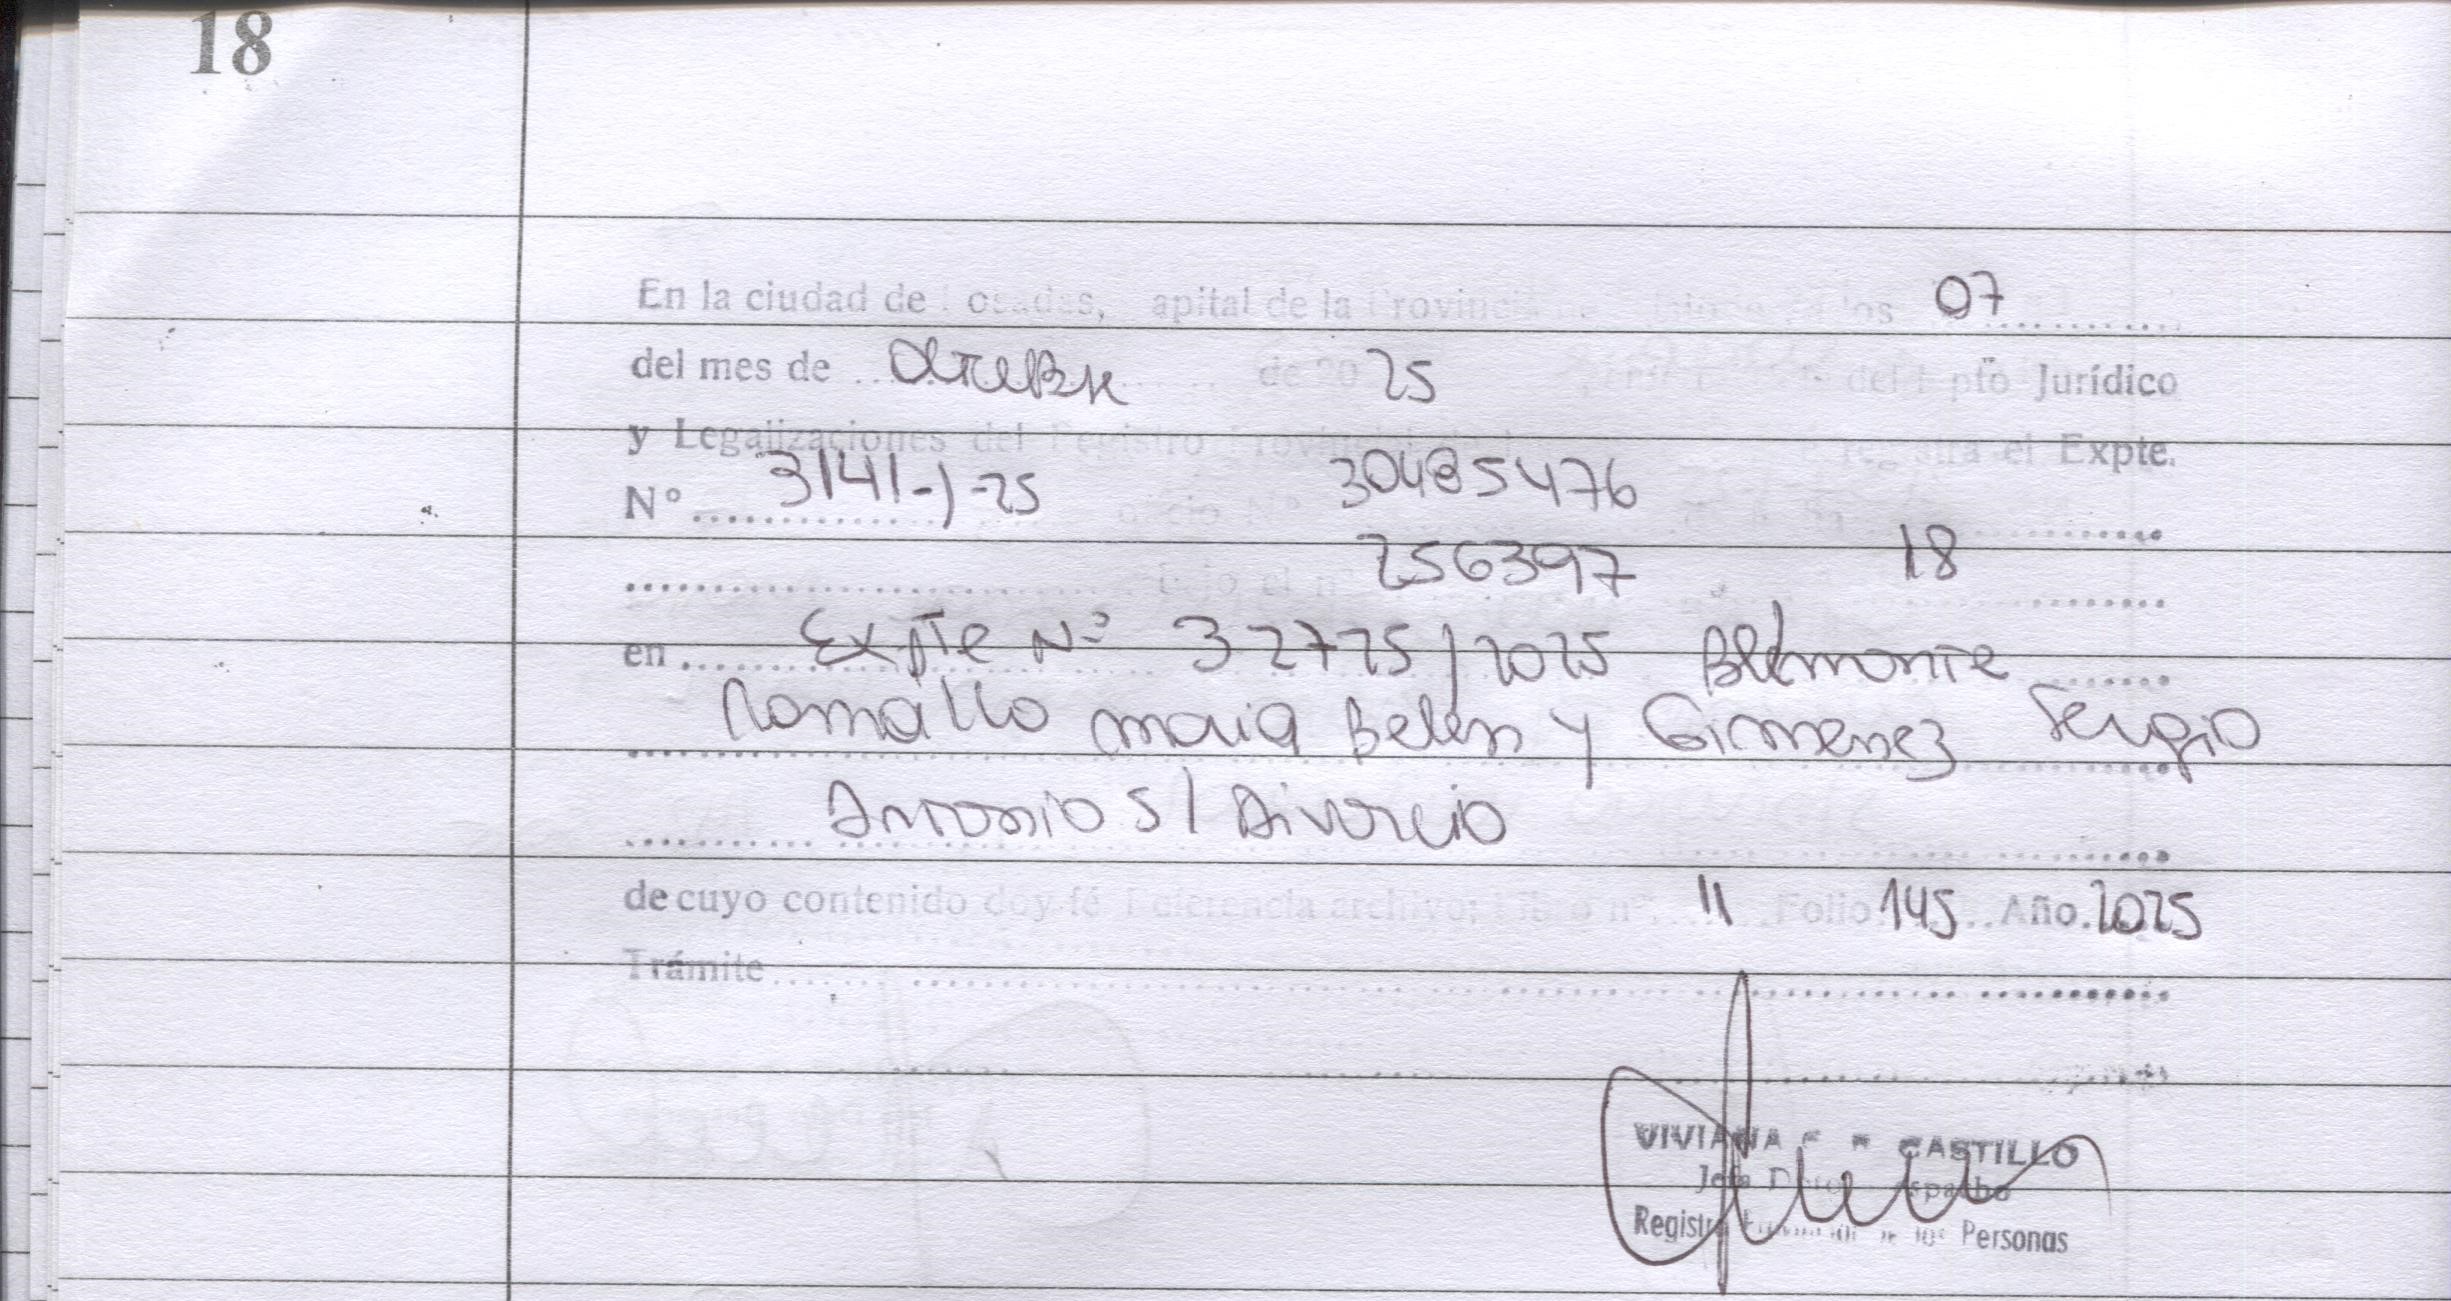 18
En la ciudad de Posadas, Capital de la Provincia de Misiones a los 07
del mes de Octubre de 20 25 del Dpto Jurídico
y Legalizaciones del Registro Provincial de las registra el Expte.
Nº 3141-J-25 oficio Nº 30485476
bajo el nº 256397 18
en Expte Nº 32725/2025 Belmonte
Ramallo Maria Belen y Gimenez Sergio
Antonio S/ Divorcio
de cuyo contenido doy fé Referencia archivo: Libro nº 11 Folio 145 Año 2025
Trámite
VIVIANA CASTILLO
Jefa Dpto Despacho
Registro Provincial de las Personas